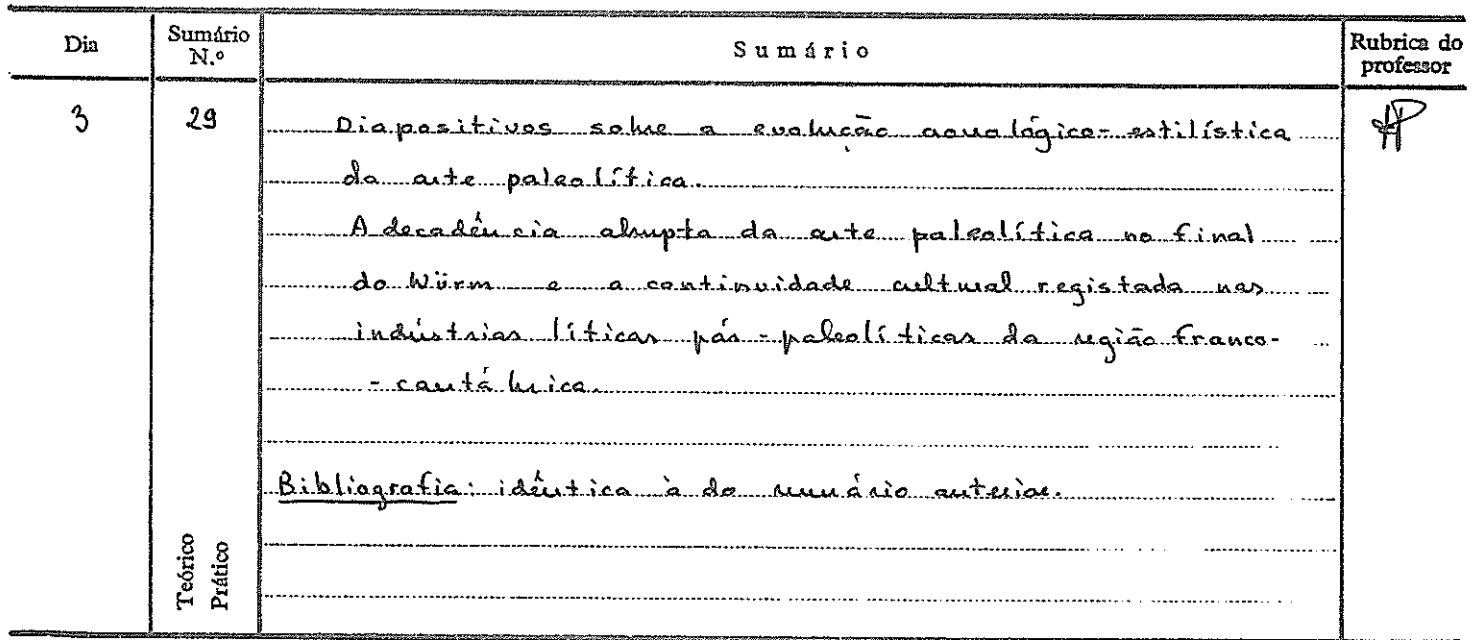 Dia Sumário N.º Sumário Rubrica do professor
3 29 Diapositivos sobre a evolução cronológico-estilística
da arte paleolítica.
A decadência abrupta da arte paleolítica no final
do Würm e a continuidade cultural registada nas
indústrias líticas pós-paleolíticas da região franco-
-cantábrica.
Bibliografia: idêntica à do sumário anterior.
Teórico
Prático